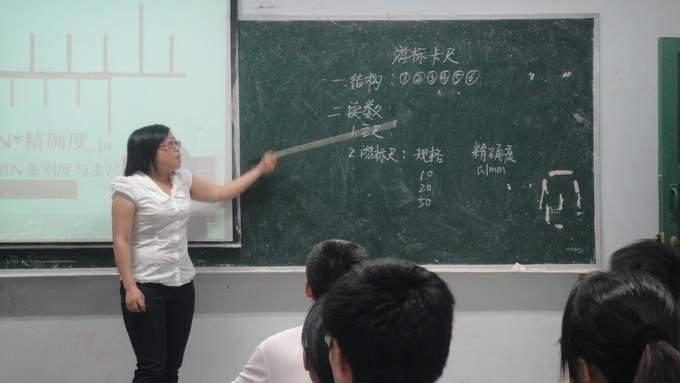 N*精确度 10
第N条刻度与主尺
游标卡尺
一.结构:①②③④⑤⑥
二.读数
1.主尺
2.游标尺:规格 精确度
10 0.1mm
20
50